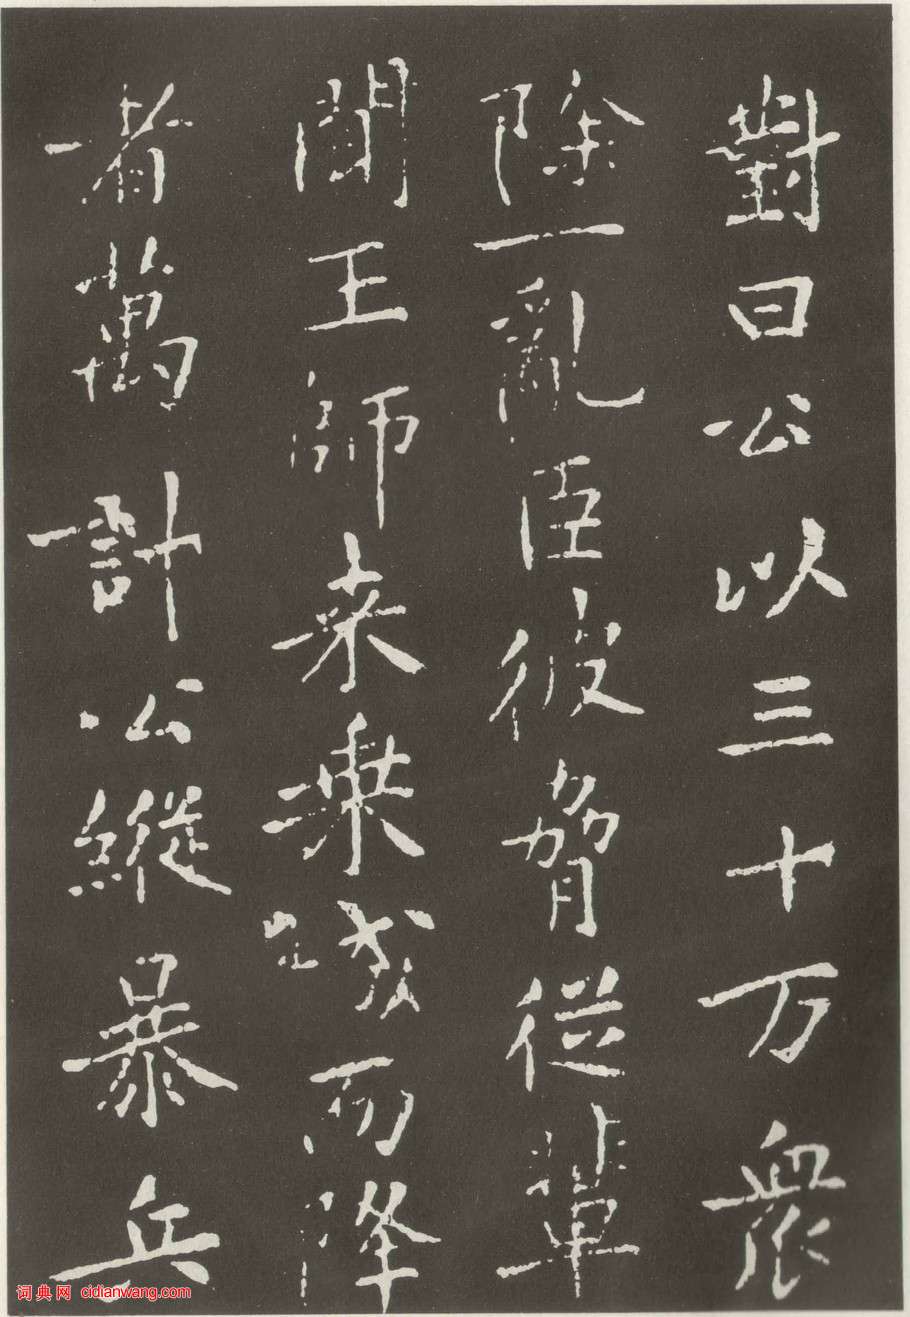 對曰公以三十万衆
除一亂臣彼脅從輩
聞王師来乘城而降
者萬計公縱暴兵
词典网 cidianwang.com